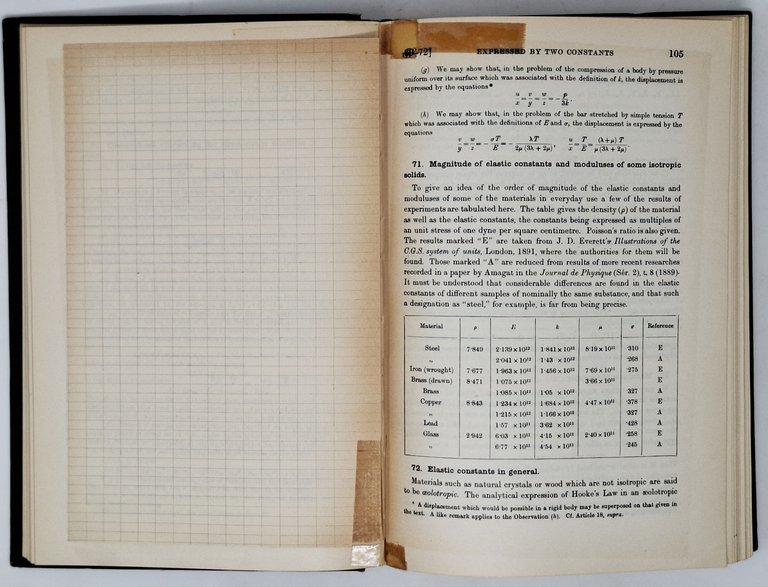 72] EXPRESSED BY TWO CONSTANTS 105
(g) We may show that, in the problem of the compression of a body by pressure
uniform over its surface which was associated with the definition of k, the displacement is
expressed by the equations*
u/x = v/y = w/z = − p/3k.
(h) We may show that, in the problem of the bar stretched by simple tension T
which was associated with the definitions of E and σ, the displacement is expressed by the
equations
v/y = w/z = − σT/E = − λT/2μ (3λ + 2μ), u/x = T/E = (λ+μ) T/μ (3λ + 2μ).
71. Magnitude of elastic constants and moduluses of some isotropic
solids.
To give an idea of the order of magnitude of the elastic constants and
moduluses of some of the materials in everyday use a few of the results of
experiments are tabulated here. The table gives the density (ρ) of the material
as well as the elastic constants, the constants being expressed as multiples of
an unit stress of one dyne per square centimetre. Poisson's ratio is also given.
The results marked "E" are taken from J. D. Everett's Illustrations of the
C.G.S. system of units, London, 1891, where the authorities for them will be
found. Those marked "A" are reduced from results of more recent researches
recorded in a paper by Amagat in the Journal de Physique (Sér. 2), t. 8 (1889).
It must be understood that considerable differences are found in the elastic
constants of different samples of nominally the same substance, and that such
a designation as "steel," for example, is far from being precise.
Material ρ E k μ σ Reference
Steel 7·849 2·139 × 10¹² 1·841 × 10¹² 8·19 × 10¹¹ ·310 E
„ 2·041 × 10¹² 1·43 × 10¹² ·268 A
Iron (wrought) 7·677 1·963 × 10¹² 1·456 × 10¹² 7·69 × 10¹¹ ·275 E
Brass (drawn) 8·471 1·075 × 10¹² 3·66 × 10¹¹ E
Brass 1·085 × 10¹² 1·05 × 10¹² ·327 A
Copper 8·843 1·234 × 10¹² 1·684 × 10¹² 4·47 × 10¹¹ ·378 E
„ 1·215 × 10¹² 1·166 × 10¹² ·327 A
Lead 1·57 × 10¹¹ 3·62 × 10¹¹ ·428 A
Glass 2·942 6·03 × 10¹¹ 4·15 × 10¹¹ 2·40 × 10¹¹ ·258 E
„ 6·77 × 10¹¹ 4·54 × 10¹¹ ·245 A
72. Elastic constants in general.
Materials such as natural crystals or wood which are not isotropic are said
to be æolotropic. The analytical expression of Hooke's Law in an æolotropic
* A displacement which would be possible in a rigid body may be superposed on that given in
the text. A like remark applies to the Observation (h). Cf. Article 18, supra.